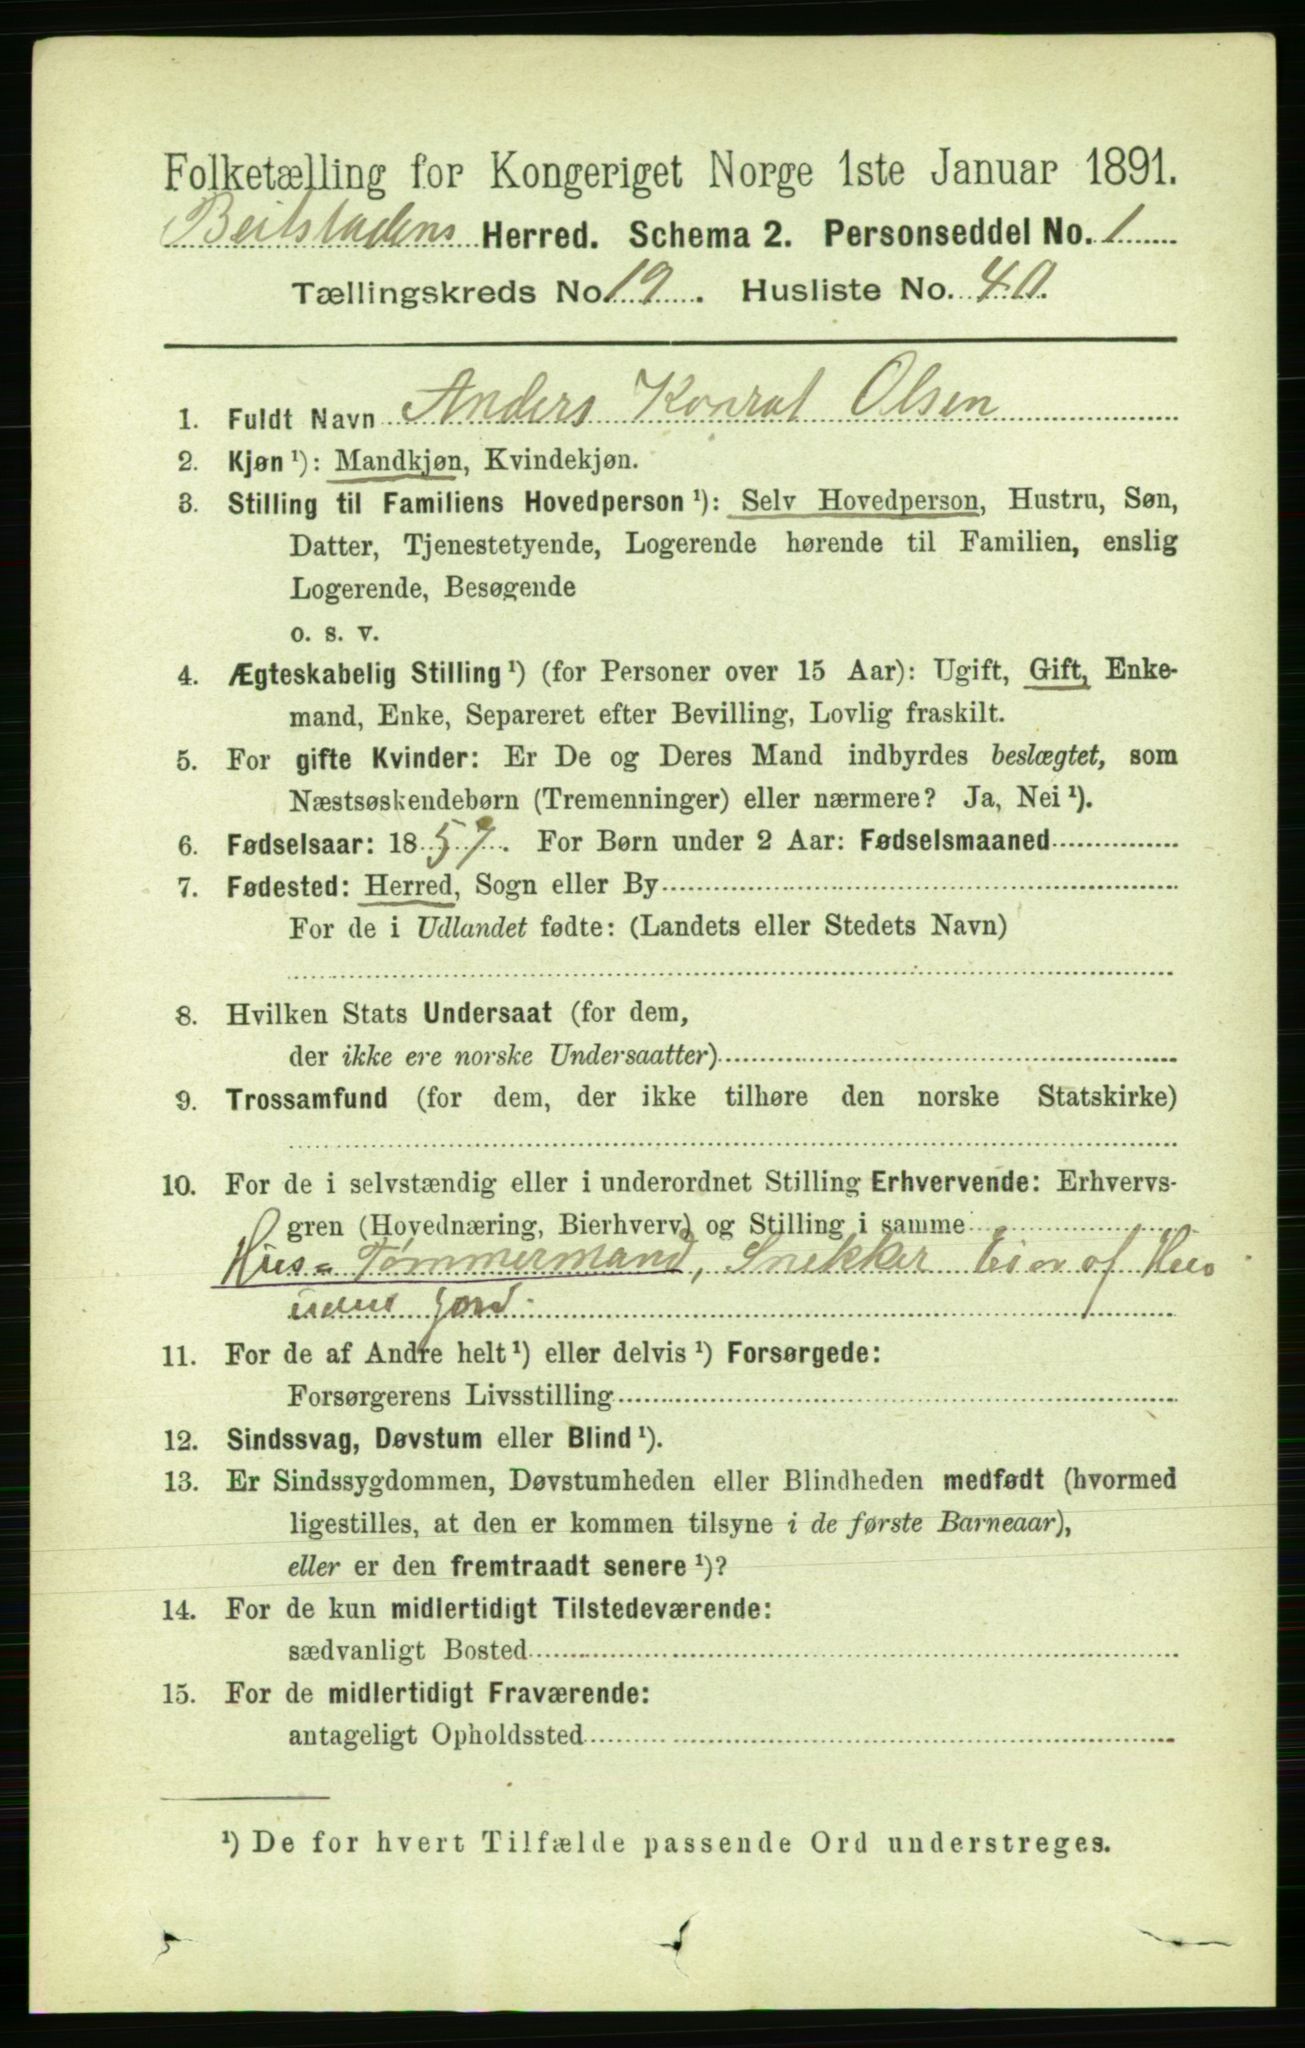 Folketælling for Kongeriget Norge 1ste Januar 1891.
Beitstadens Herred. Schema 2. Personseddel No. 1
Tællingskreds No. 19. Husliste No. 40.
1. Fuldt Navn Anders Konrat Olsen
2. Kjøn ¹): Mandkjøn, Kvindekjøn.
3. Stilling til Familiens Hovedperson ¹): Selv Hovedperson, Hustru, Søn,
Datter, Tjenestetyende, Logerende hørende til Familien, enslig
Logerende, Besøgende
o. s. v.
4. Ægteskabelig Stilling ¹) (for Personer over 15 Aar): Ugift, Gift, Enke-
mand, Enke, Separeret efter Bevilling, Lovlig fraskilt.
5. For gifte Kvinder: Er De og Deres Mand indbyrdes beslægtet, som
Næstsøskendebørn (Tremenninger) eller nærmere? Ja, Nei ¹).
6. Fødselsaar: 1857. For Børn under 2 Aar: Fødselsmaaned
7. Fødested: Herred, Sogn eller By
For de i Udlandet fødte: (Landets eller Stedets Navn)
8. Hvilken Stats Undersaat (for dem,
der ikke ere norske Undersaatter)
9. Trossamfund (for dem, der ikke tilhøre den norske Statskirke)
10. For de i selvstændig eller i underordnet Stilling Erhvervende: Erhvervs-
gren (Hovednæring, Bierhverv) og Stilling i samme
Hus- Tømmermand, Snekker Eier af Hus
uden Jord.
11. For de af Andre helt ¹) eller delvis ¹) Forsørgede:
Forsørgerens Livsstilling
12. Sindssvag, Døvstum eller Blind ¹).
13. Er Sindssygdommen, Døvstumheden eller Blindheden medfødt (hvormed
ligestilles, at den er kommen tilsyne i de første Barneaar),
eller er den fremtraadt senere ¹)?
14. For de kun midlertidigt Tilstedeværende:
sædvanligt Bosted
15. For de midlertidigt Fraværende:
antageligt Opholdssted
¹) De for hvert Tilfælde passende Ord understreges.